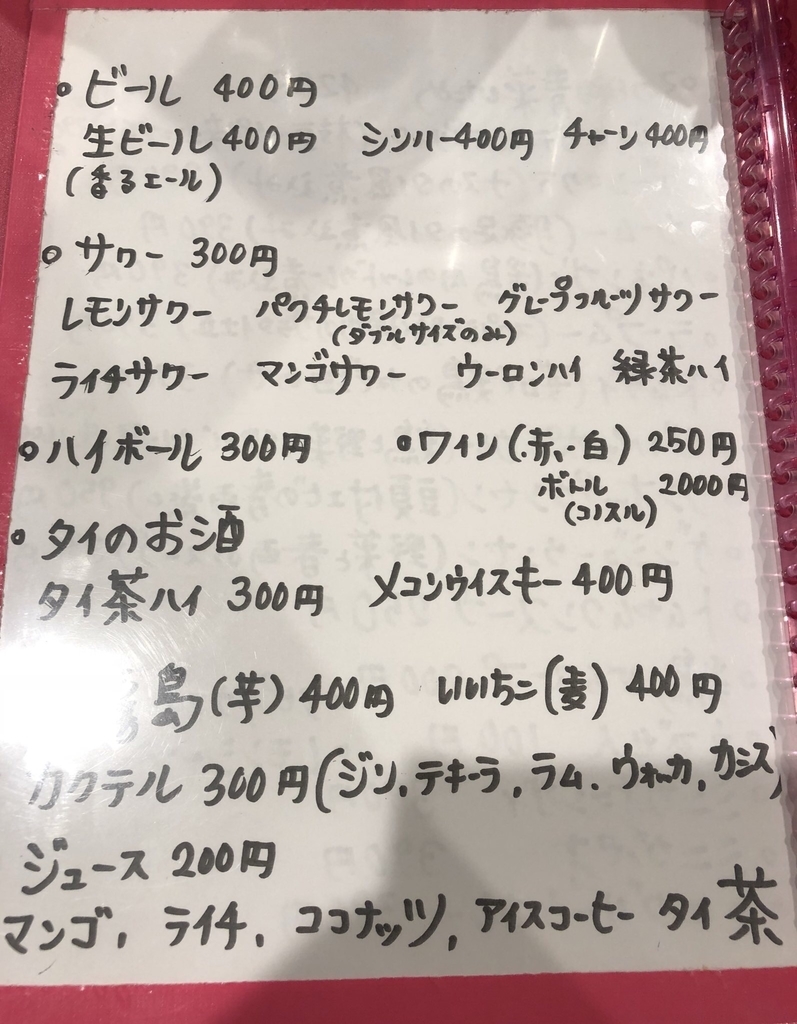 • ビール 400円
生ビール 400円 シンハー400円 チャーン 400円
(香るエール)
• サワー 300円
レモンサワー パクチレモンサワー グレープフルーツサワー
(ダブルサイズのみ)
ライチサワー マンゴサワー ウーロンハイ 緑茶ハイ
• ハイボール 300円 • ワイン (赤・白) 250円
ボトル 2000円
(コノスル)
• タイのお酒
タイ茶ハイ 300円 メコンウイスキー 400円
島 (芋) 400円 いいちこ (麦) 400円
カクテル 300円 (ジン, テキーラ, ラム, ウォッカ, カシス)
ジュース 200円
マンゴ, ライチ, ココナッツ, アイスコーヒー タイ茶